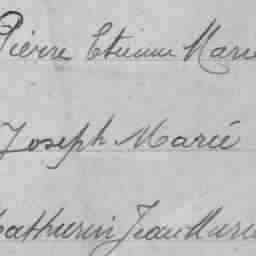 Pierre Etienne Marie
Joseph Marie
Mathurin Jean Marie